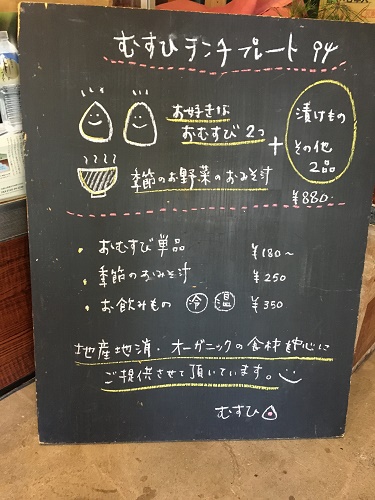 むすひランチプレート
お好きな
おむすび 2つ
+
漬けもの
その他
2品
季節のお野菜のおみそ汁
¥880-
・おむすび単品 ¥180〜
・季節のおみそ汁 ¥250
・お飲みもの 冷 温 ¥350
地産地消・オーガニックの食材を中心に
ご提供させて頂いています。
むすひ